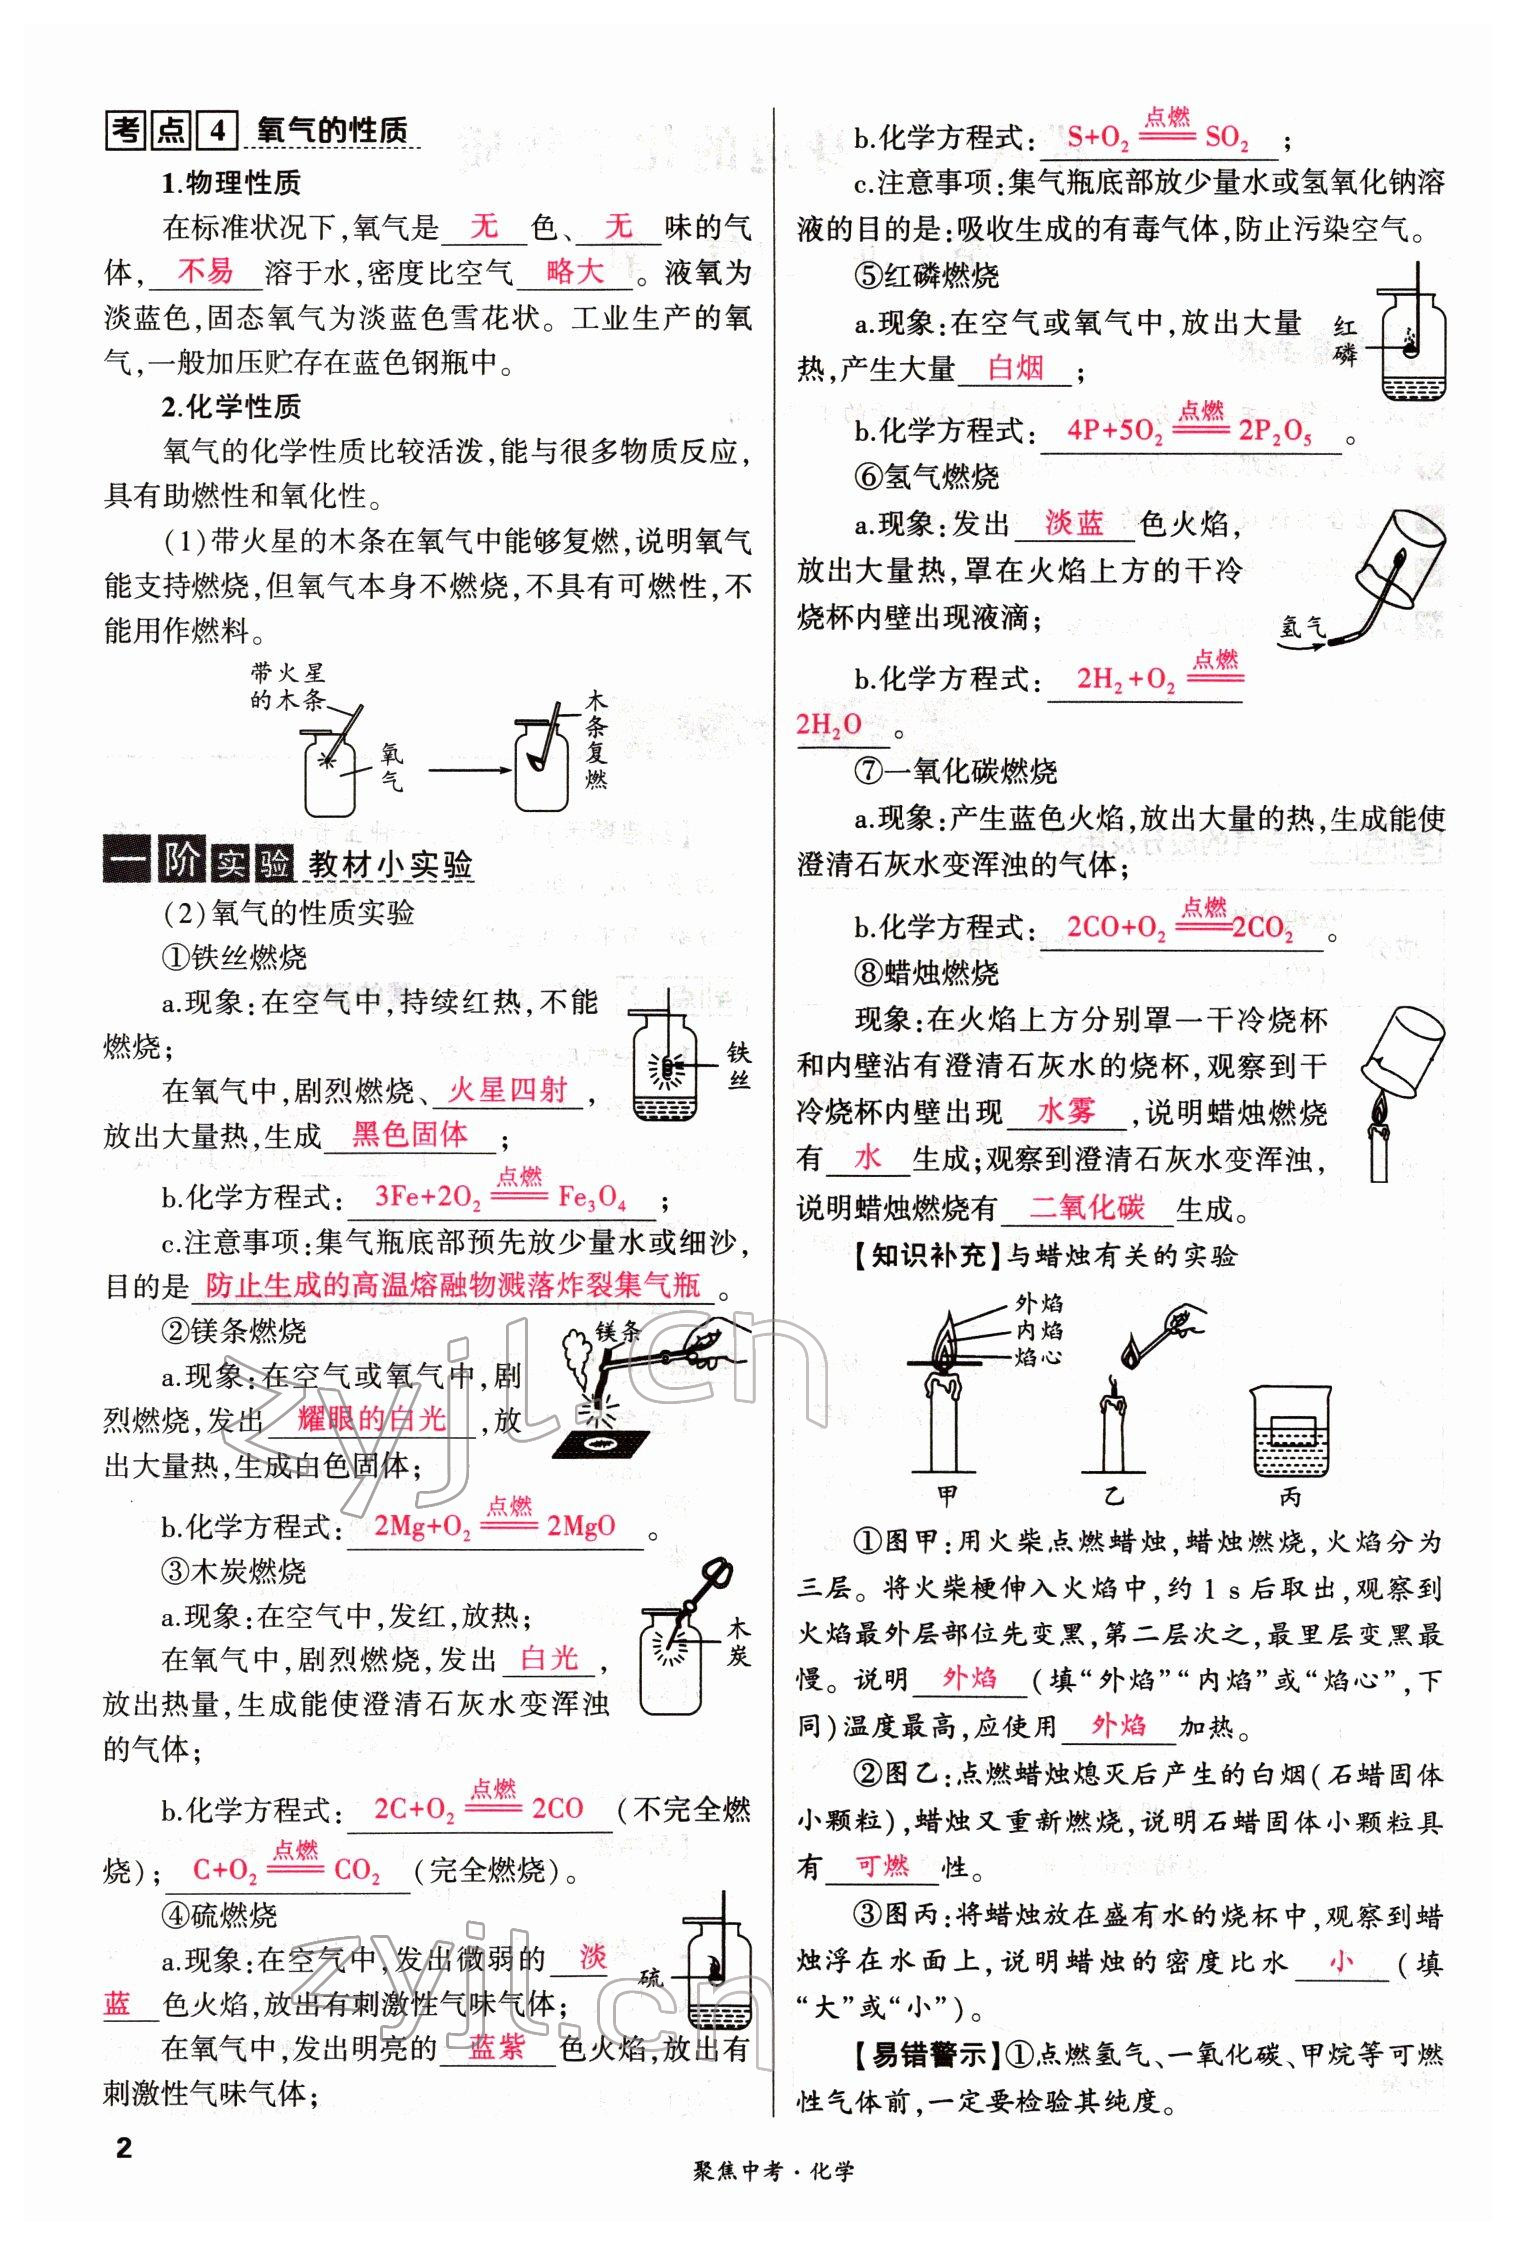 考点4 氧气的性质
1.物理性质
在标准状况下,氧气是 无 色、 无 味的气
体, 不易 溶于水,密度比空气 略大 。液氧为
淡蓝色,固态氧气为淡蓝色雪花状。工业生产的氧
气,一般加压贮存在蓝色钢瓶中。
2.化学性质
氧气的化学性质比较活泼,能与很多物质反应,
具有助燃性和氧化性。
(1)带火星的木条在氧气中能够复燃,说明氧气
能支持燃烧,但氧气本身不燃烧,不具有可燃性,不
能用作燃料。
带火星
的木条
氧气
木条复燃
一阶实验 教材小实验
(2)氧气的性质实验
①铁丝燃烧
a.现象:在空气中,持续红热,不能
燃烧;
在氧气中,剧烈燃烧、 火星四射 ,
放出大量热,生成 黑色固体 ;
铁丝
b.化学方程式: 3Fe+2O₂ 点燃═ Fe₃O₄ ;
c.注意事项:集气瓶底部预先放少量水或细沙,
目的是 防止生成的高温熔融物溅落炸裂集气瓶 。
②镁条燃烧
镁条
a.现象:在空气或氧气中,剧
烈燃烧,发出 耀眼的白光 ,放
出大量热,生成白色固体;
b.化学方程式: 2Mg+O₂ 点燃═ 2MgO 。
③木炭燃烧
a.现象:在空气中,发红,放热;
木炭
在氧气中,剧烈燃烧,发出 白光 ,
放出热量,生成能使澄清石灰水变浑浊
的气体;
b.化学方程式: 2C+O₂ 点燃═ 2CO (不完全燃
烧); C+O₂ 点燃═ CO₂ (完全燃烧)。
④硫燃烧
a.现象:在空气中,发出微弱的 淡
蓝 色火焰,放出有刺激性气味气体;
硫
在氧气中,发出明亮的 蓝紫 色火焰,放出有
刺激性气味气体;
b.化学方程式: S+O₂ 点燃═ SO₂ ;
c.注意事项:集气瓶底部放少量水或氢氧化钠溶
液的目的是:吸收生成的有毒气体,防止污染空气。
⑤红磷燃烧
a.现象:在空气或氧气中,放出大量
热,产生大量 白烟 ;
红磷
b.化学方程式: 4P+5O₂ 点燃═ 2P₂O₅ 。
⑥氢气燃烧
a.现象:发出 淡蓝 色火焰,
放出大量热,罩在火焰上方的干冷
烧杯内壁出现液滴;
氢气
b.化学方程式: 2H₂+O₂ 点燃═
2H₂O 。
⑦一氧化碳燃烧
a.现象:产生蓝色火焰,放出大量的热,生成能使
澄清石灰水变浑浊的气体;
b.化学方程式: 2CO+O₂ 点燃═ 2CO₂ 。
⑧蜡烛燃烧
现象:在火焰上方分别罩一干冷烧杯
和内壁沾有澄清石灰水的烧杯,观察到干
冷烧杯内壁出现 水雾 ,说明蜡烛燃烧
有 水 生成;观察到澄清石灰水变浑浊,
说明蜡烛燃烧有 二氧化碳 生成。
【知识补充】与蜡烛有关的实验
外焰
内焰
焰心
甲 乙 丙
①图甲:用火柴点燃蜡烛,蜡烛燃烧,火焰分为
三层。将火柴梗伸入火焰中,约1 s后取出,观察到
火焰最外层部位先变黑,第二层次之,最里层变黑最
慢。说明 外焰 (填“外焰”“内焰”或“焰心”,下
同)温度最高,应使用 外焰 加热。
②图乙:点燃蜡烛熄灭后产生的白烟(石蜡固体
小颗粒),蜡烛又重新燃烧,说明石蜡固体小颗粒具
有 可燃 性。
③图丙:将蜡烛放在盛有水的烧杯中,观察到蜡
烛浮在水面上,说明蜡烛的密度比水 小 (填
“大”或“小”)。
【易错警示】①点燃氢气、一氧化碳、甲烷等可燃
性气体前,一定要检验其纯度。
2
聚焦中考·化学
zyjl.cn
zyjl.cn